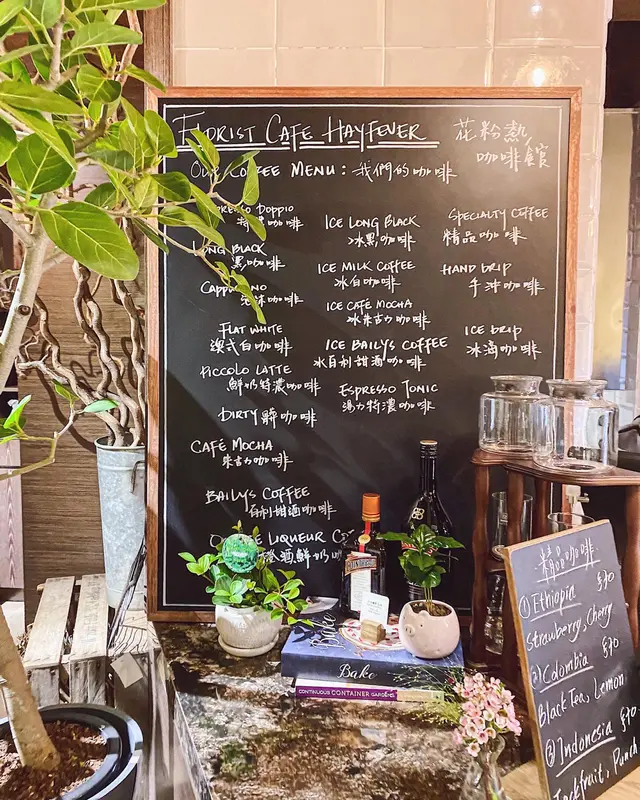 FLORIST CAFE HAYFEVER
花粉熱
咖啡館
OUR COFFEE MENU : 我們的咖啡
DOPPIO
特濃咖啡
LONG BLACK
黑咖啡
CAPPUCCINO
咖啡
FLAT WHITE
澳式白咖啡
PICCOLO LATTE
鮮奶特濃咖啡
DIRTY 髒咖啡
CAFÉ MOCHA
朱古力咖啡
BAILYS COFFEE
百利甜酒咖啡
LIQUEUR
橙酒鮮奶
ICE LONG BLACK
冰黑咖啡
ICE MILK COFFEE
冰白咖啡
ICE CAFÉ MOCHA
冰朱古力咖啡
ICE BAILYS COFFEE
冰百利甜酒咖啡
ESPRESSO TONIC
湯力特濃咖啡
SPECIALTY COFFEE
精品咖啡
HAND DRIP
手沖咖啡
ICE DRIP
冰滴咖啡
Bake
Bake
CONTINUOUS CONTAINER GARDENS
精品咖啡
① Ethiopia $70
Strawberry, Cherry
② Colombia $70
Black Tea, Lemon
③ Indonesia $70
Jackfruit, Punch